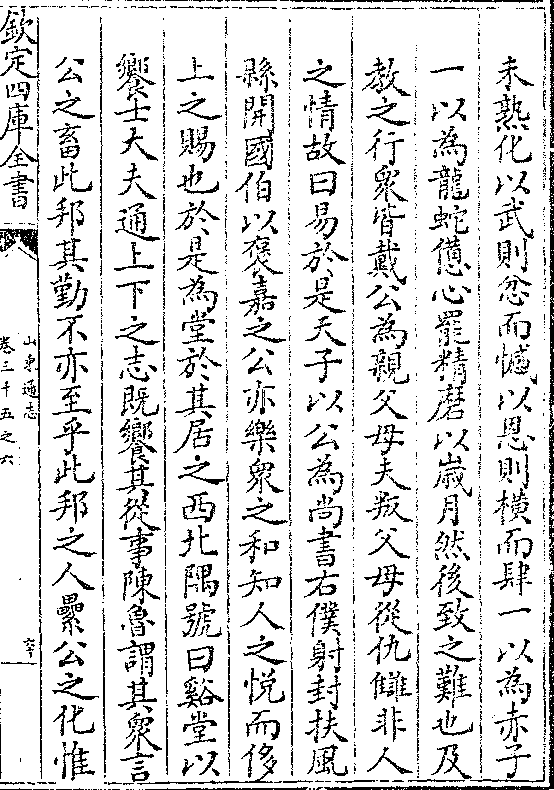 未熟化以武則忿而憾以恩則橫而肆一以為赤子
一以為龍蛇憊心罷精磨以歲月然後致之難也及
教之行衆皆戴公為親父母夫叛父母從仇讎非人
之情故曰易於是天子以公為尚書右僕射封扶風
縣開國伯以襃嘉之公亦樂衆之和知人之悅而侈
上之賜也於是為堂於其居之西北隅號曰谿堂以
饗士大夫通上下之志既饗其從事陳魯謂其衆言
公之畜此邦其勤不亦至乎此邦之人纍公之化惟
欽定四庫全書
山東通志
卷三十五之六